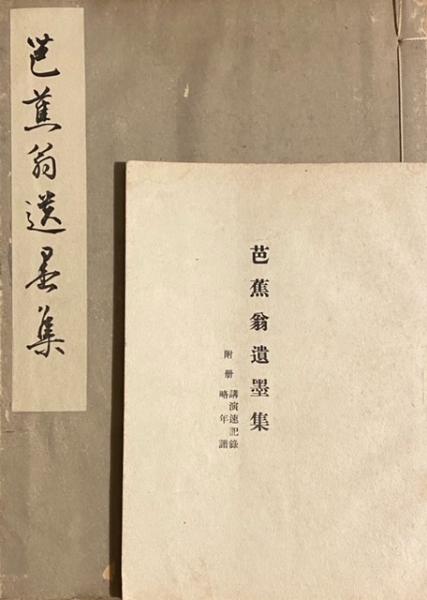 芭蕉翁遺墨集
芭蕉翁遺墨集
附冊
講演速記錄
略年譜